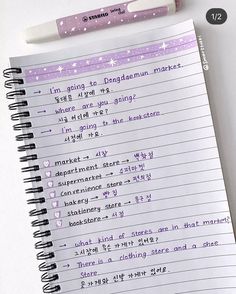 STABILO
1/2
→ I'm going to Dongdaemun market.
동대문 시장에 가요.
→ Where are you going?
어디에 가요?
→ I'm going to the bookstore.
서점에 가요.
market → 시장
department store → 백화점
supermarket → 슈퍼마켓
convenience store → 편의점
bakery → 빵집
stationery store → 문구점
bookstore → 서점
→ what kind of stores are in that market?
그 시장에 무슨 가게가 있어요?
→ There is a clothing store and a shoe
store.
옷 가게와 신발 가게가 있어요